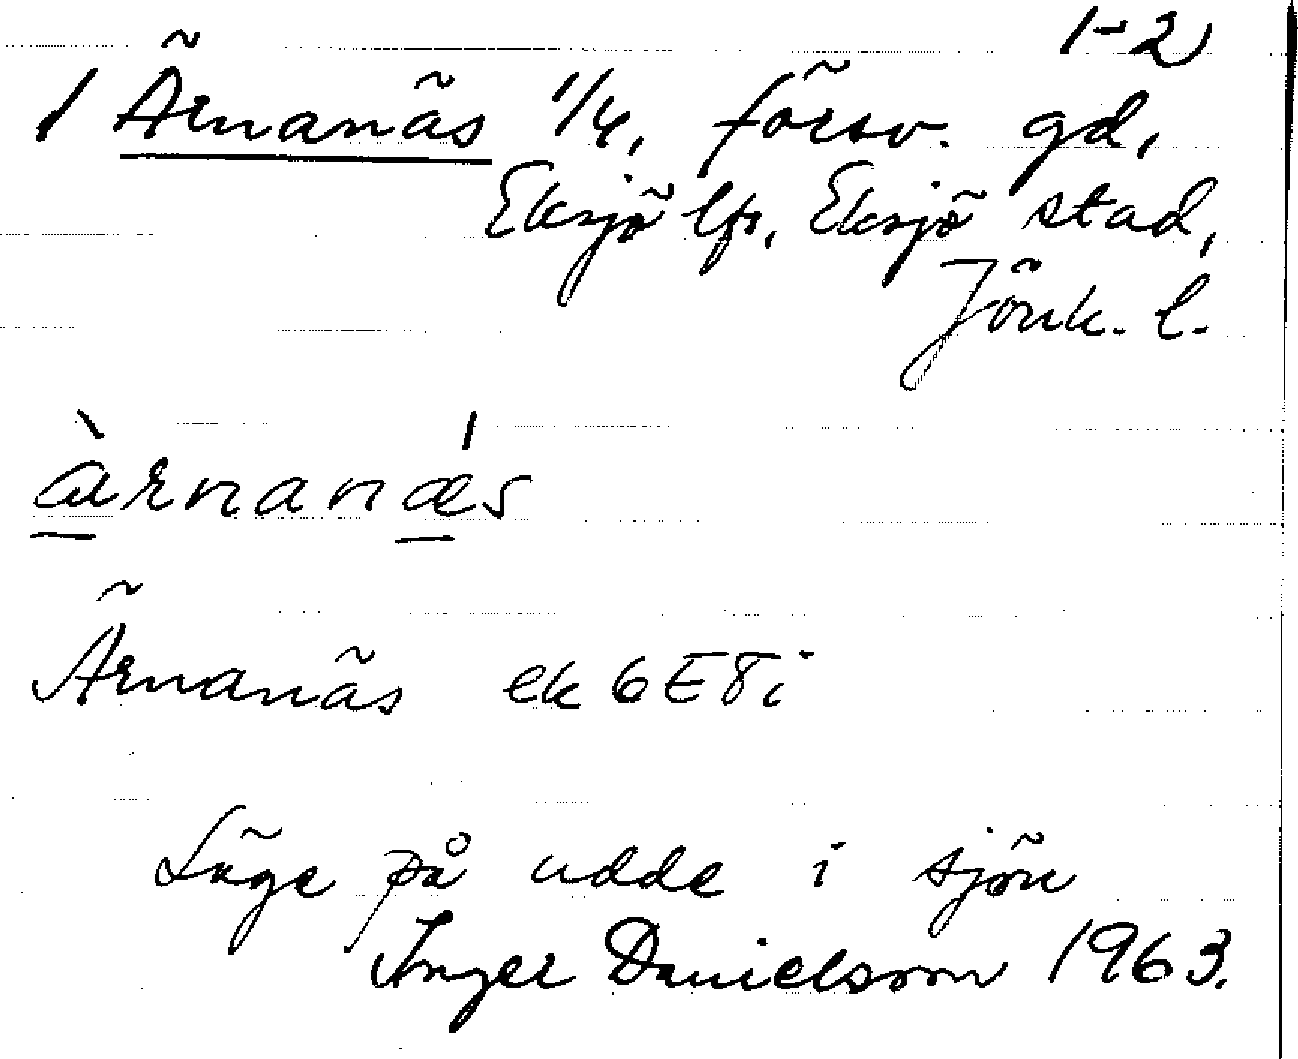 1-2
1 Ärnanäs 1/4, försv. gd,
Eksjö lfs, Eksjö stad,
Jönk. l.
æ̀rnanǽs
Ärnanäs ek 6E8i
Läge på udde i sjön
Inger Danielsson 1963.